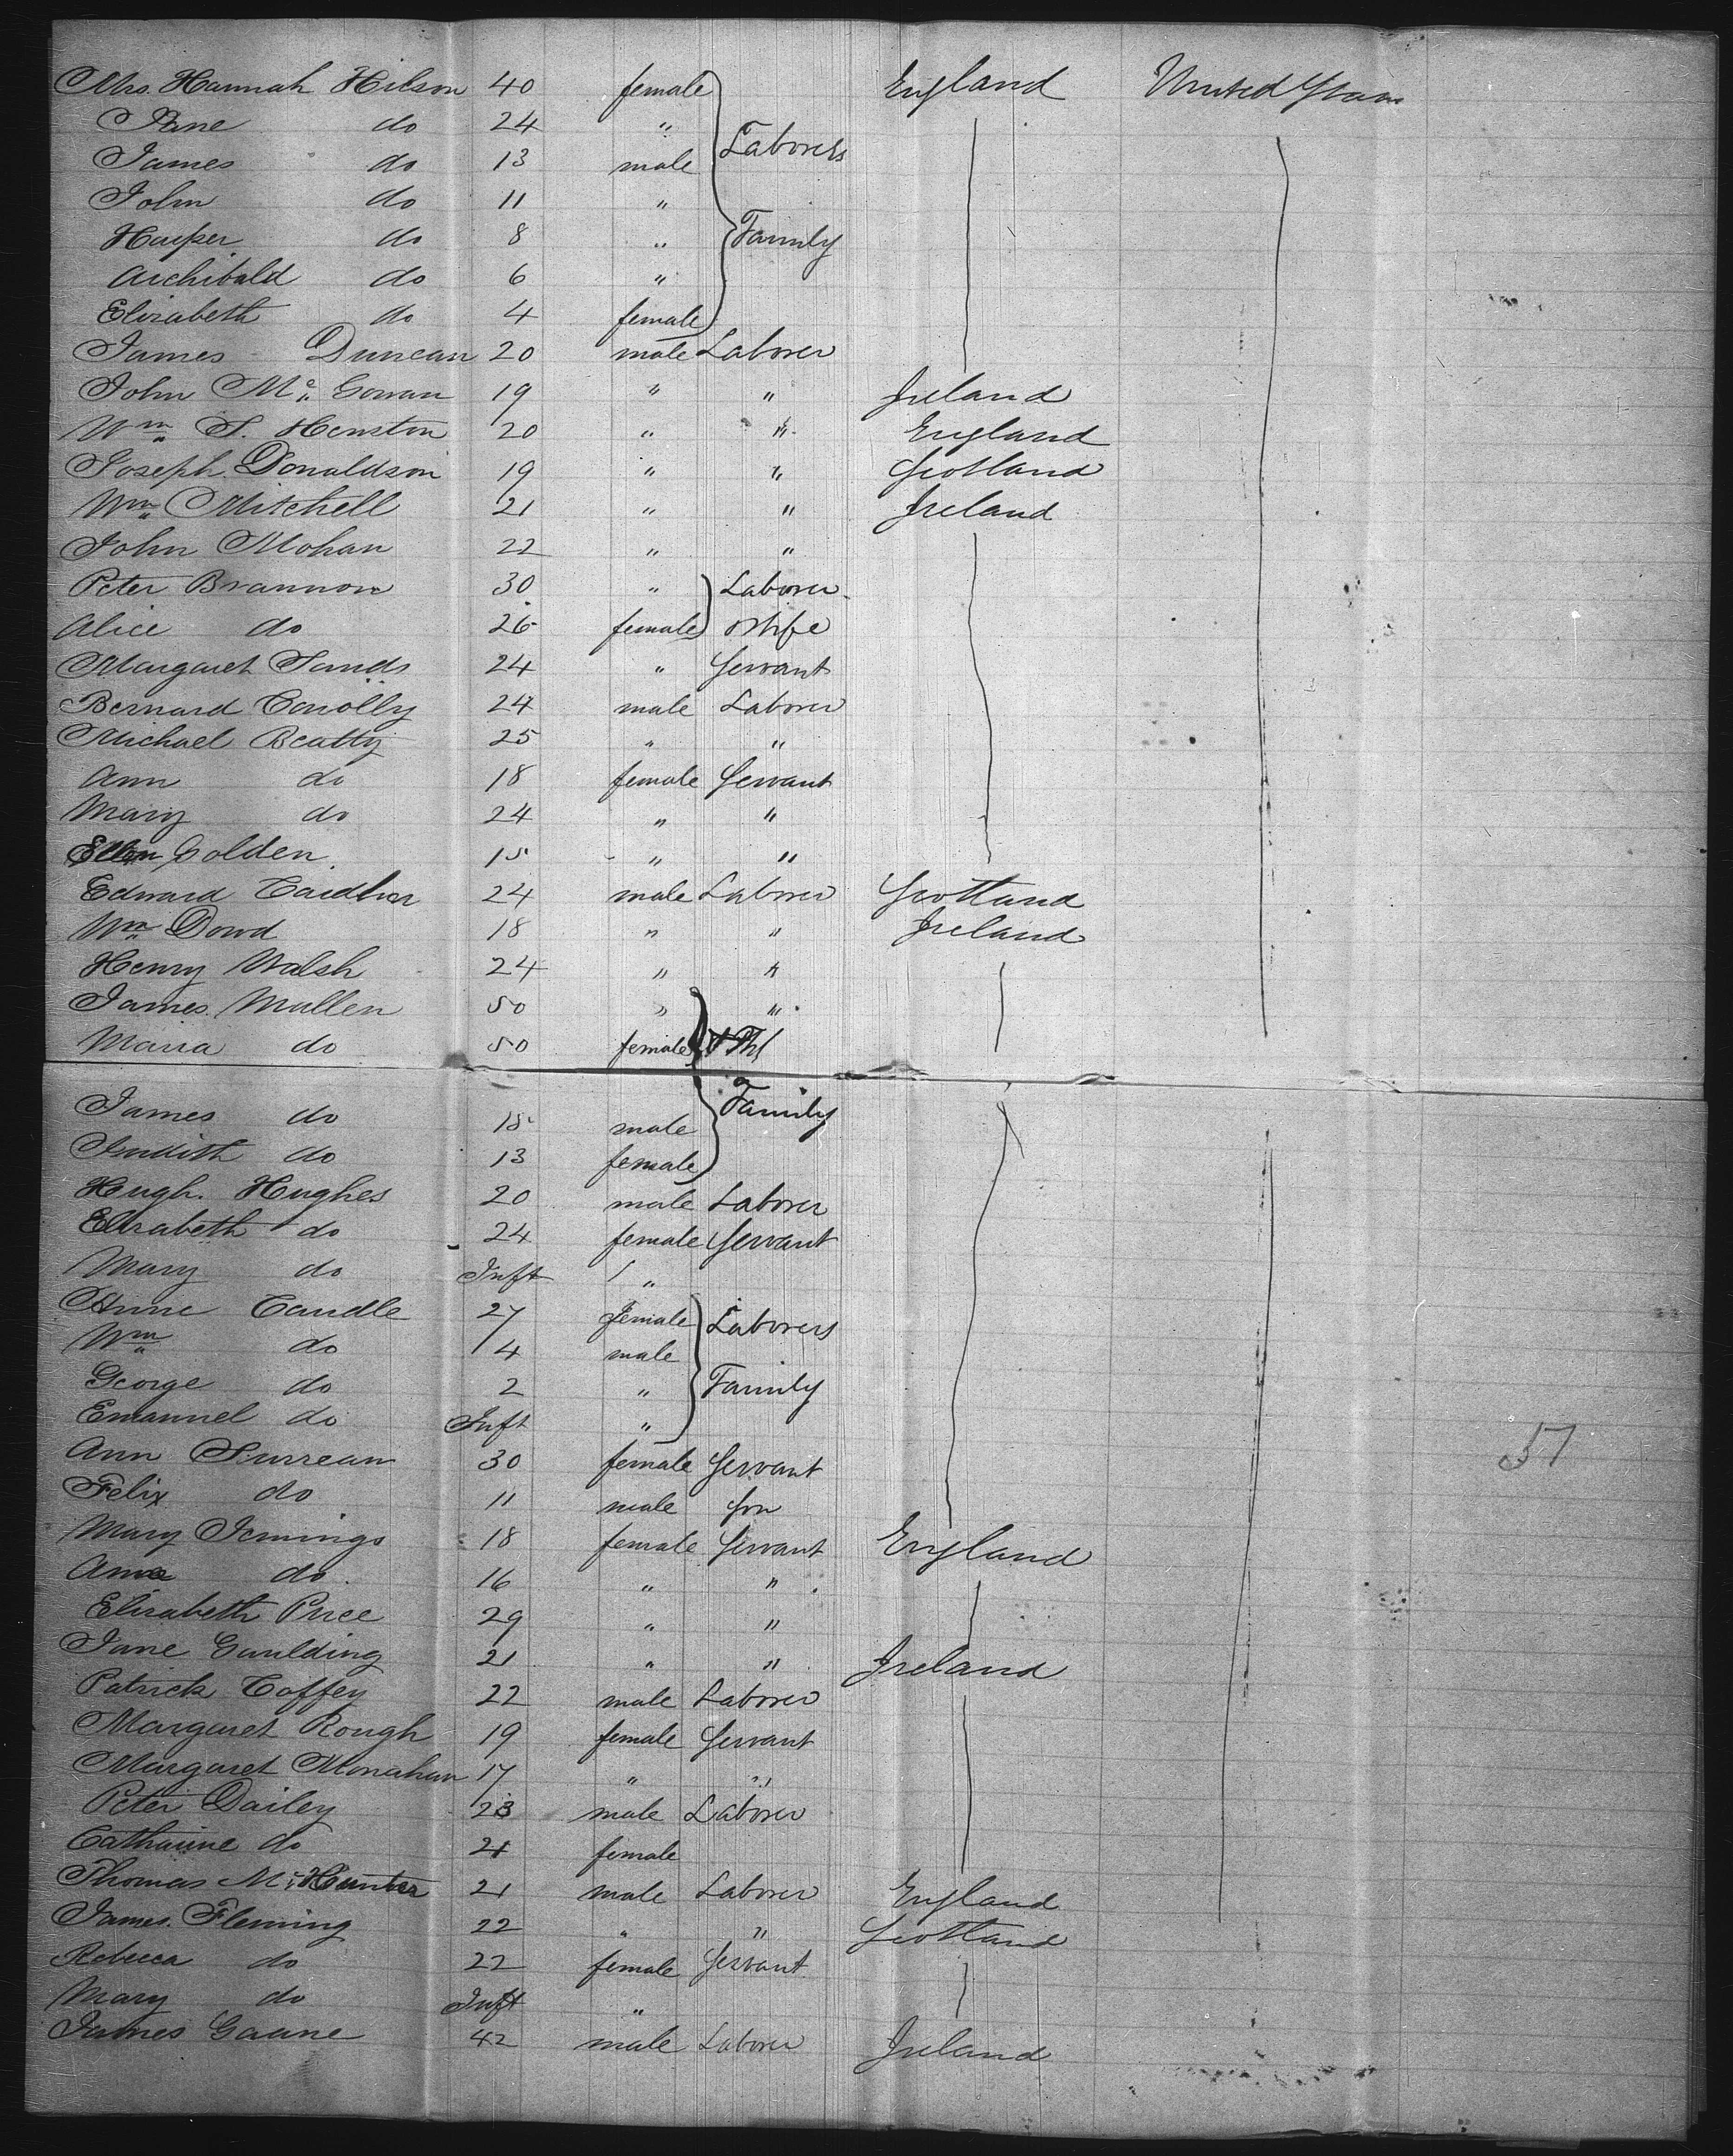 Mrs. Hannah Hilson 40 female England United States
Jane do 24 " Laborers
James do 13 male
John do 11 "
Harper do 8 " Family
Archibald do 6 "
Elizabeth do 4 female
James Duncan 20 male Laborer
John Mc Gowan 19 " " Ireland
Wm S. Henston 20 " " England
Joseph Donaldson 19 " " Scotland
Wm Mitchell 21 " " Ireland
John Mohan 22 " "
Peter Brannon 30 " Laborer
Alice do 26 female & Wife
Margaret Sands 24 " Servant
Bernard Conolly 24 male Laborer
Michael Beatty 25 " "
Ann do 18 female Servant
Mary do 24 " "
Ellen Golden 15 " "
Edward 24 male Laborer Scotland
Wm Dowd 18 " " Ireland
Henry Walsh 24 " "
James Mullen 50 " "
Maria do 50 female
Family
James do 15 male
Judith do 13 female
Hugh Hughes 20 male Laborer
Elizabeth do 24 female Servant
Mary do Inft "
Anne Caudle 27 female Laborers
Wm do 4 male
George do 2 " Family
Emanuel do Inft "
Ann 30 female Servant
37
Felix do 11 male Son
Mary Jennings 18 female Servant England
do 16 " "
Elizabeth Price 29 " "
Jane Gaulding 21 " " Ireland
Patrick Coffey 22 male Laborer
Margaret Rough 19 female Servant
Margaret Monahan 17 " "
Peter Dailey 23 male Laborer
Catharine do 21 female
Thomas Mc Hunter 21 male Laborer England
James Fleming 22 " " Scotland
Rebecca do 22 female Servant
Mary do Inft "
James Gaune 42 male Laborer Ireland